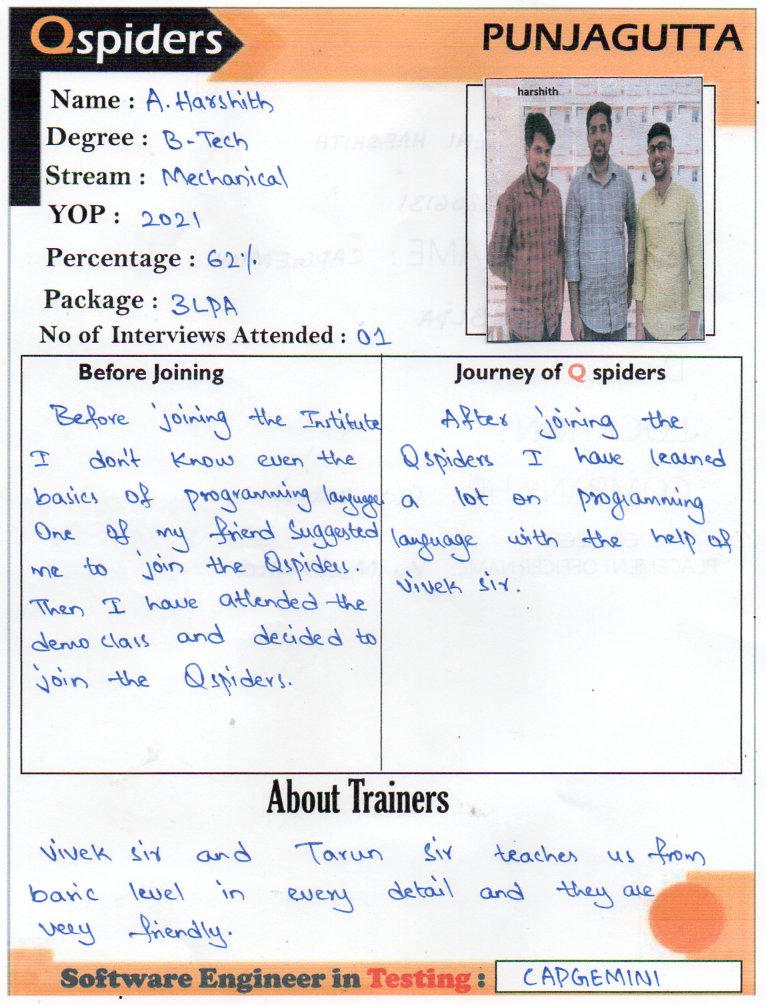 Qspiders
PUNJAGUTTA
harshith
Name : A. Harshith
Degree : B-Tech
Stream : Mechanical
YOP : 2021
Percentage : 62%
Package : 3LPA
No of Interviews Attended : 01
Before Joining
Before joining the Institute
I don't know even the
basics of programming languages
One of my friend suggested
me to join the Qspiders.
Then I have attended the
demo class and decided to
join the Qspiders.
Journey of Q spiders
After joining the
Qspiders I have learned
a lot on programming
language with the help of
Vivek sir.
About Trainers
Vivek sir and Tarun sir teaches us from
basic level in every detail and they are
very friendly.
Software Engineer in Testing : CAPGEMINI